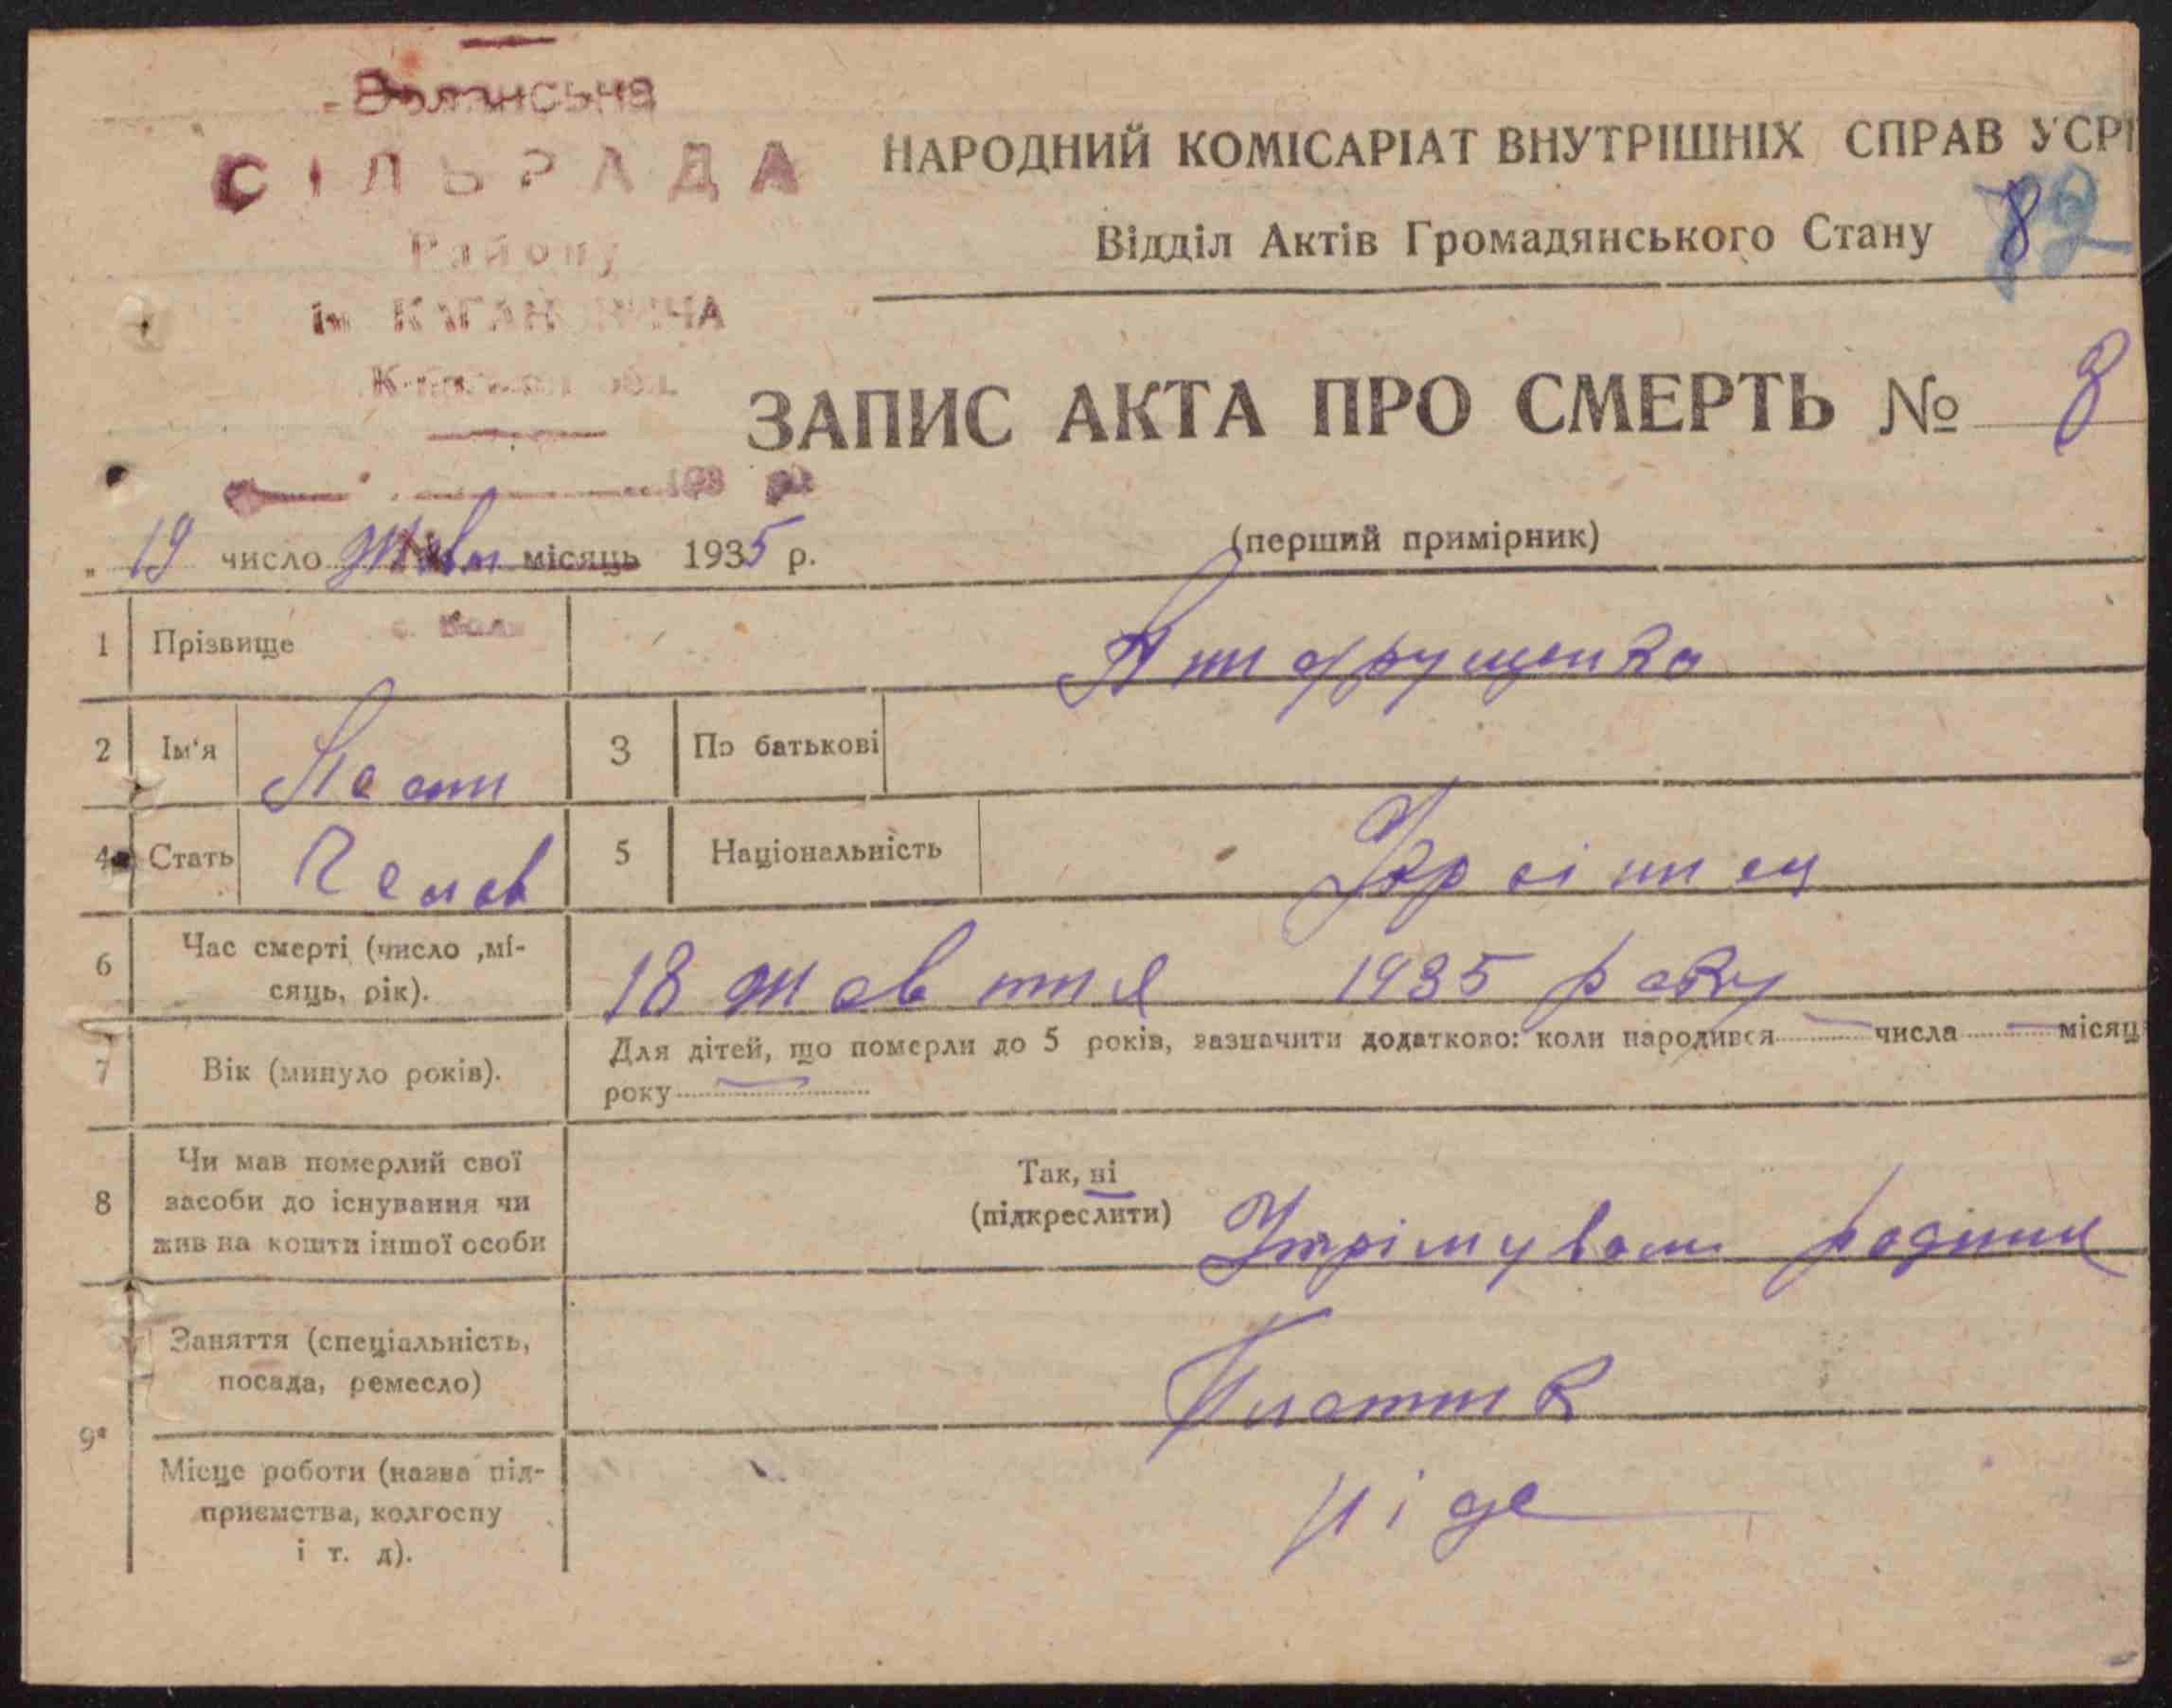 СІЛЬРАДА
Району
ім КАГАНОВИЧА
НАРОДНИЙ КОМІСАРІАТ ВНУТРІШНІХ СПРАВ УСРР
Відділ Актів Громадянського Стану 8
ЗАПИС АКТА ПРО СМЕРТЬ № 8
193
„ 19 число Жовт місяць 1935 р.
(перший примірник)
1 Прізвище
2 Ім'я
3 По батькові
4 Стать Чолов
5 Національність Украінец
6 Час смерті (число ,мі-
сяць, рік). 18 жовтня 1935 року
7 Вік (минуло років).
Для дітей, що померли до 5 років, зазначити додатково: коли народився — числа — місяц
року —
8 Чи мав померлий свої
засоби до існування чи
жив на кошти іншої особи
Так, ні
(підкреслити) Утрімували родини
9 Заняття (спеціальність,
посада, ремесло) Плотник
Місце роботи (назва під-
приємства, колгоспу
і т. д). ніде